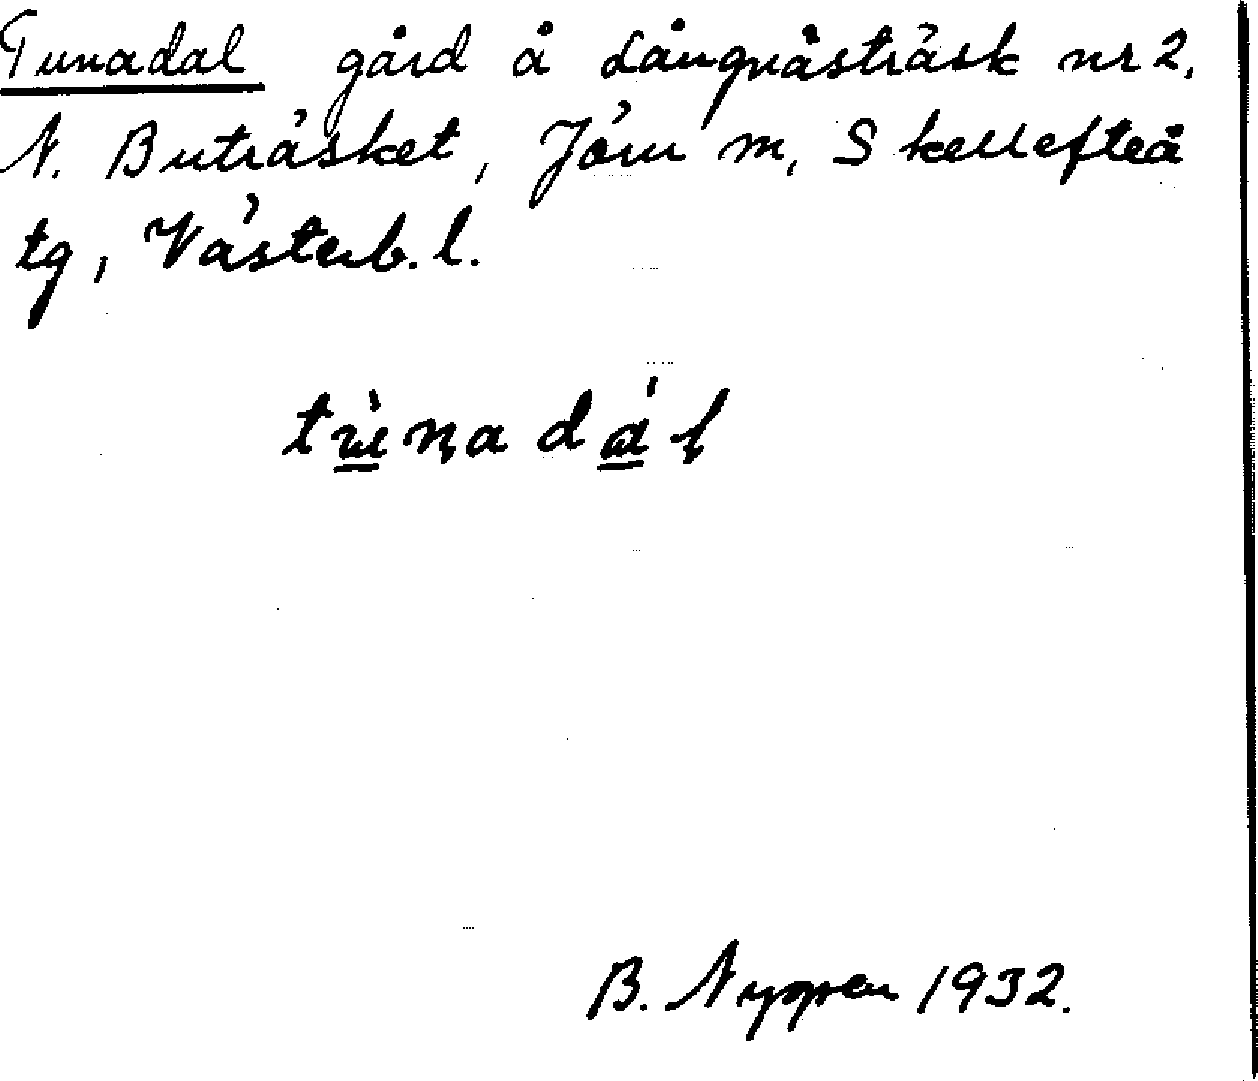 Tunadal gård å Långnästräsk nr 2,
N. Buträsket, Jörn m, Skellefteå
tg, Västerb. l.
tùnadál
B. Nygren 1932.